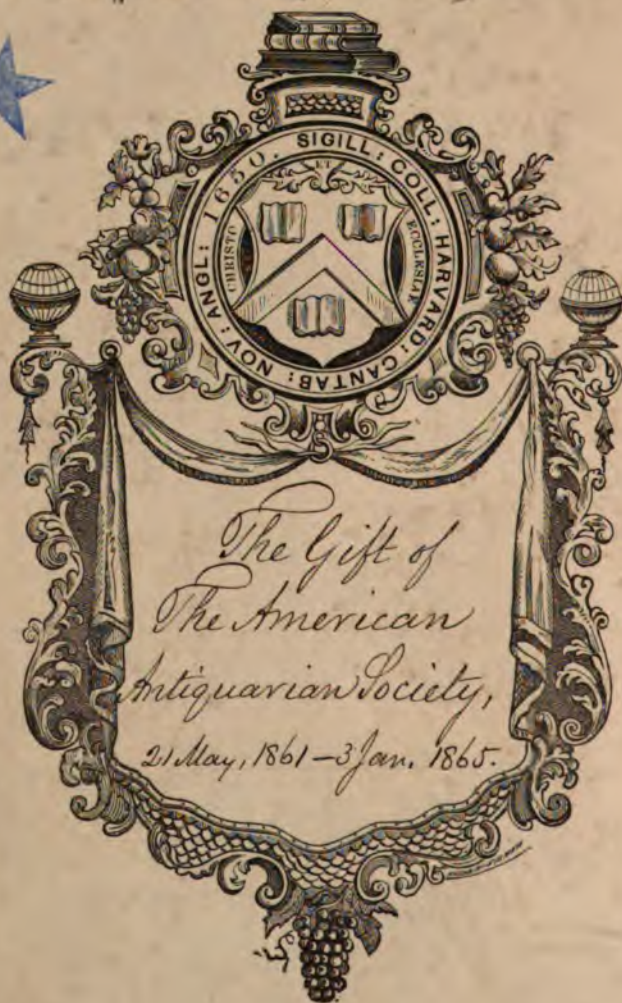 SIGILL: COLL: HARVARD: CANTAB: NOV: ANGL: 1650.
CHRISTO
ET
ECCLESIAE
The Gift of
The American
Antiquarian Society,
21 May, 1861 – 3 Jan. 1865.